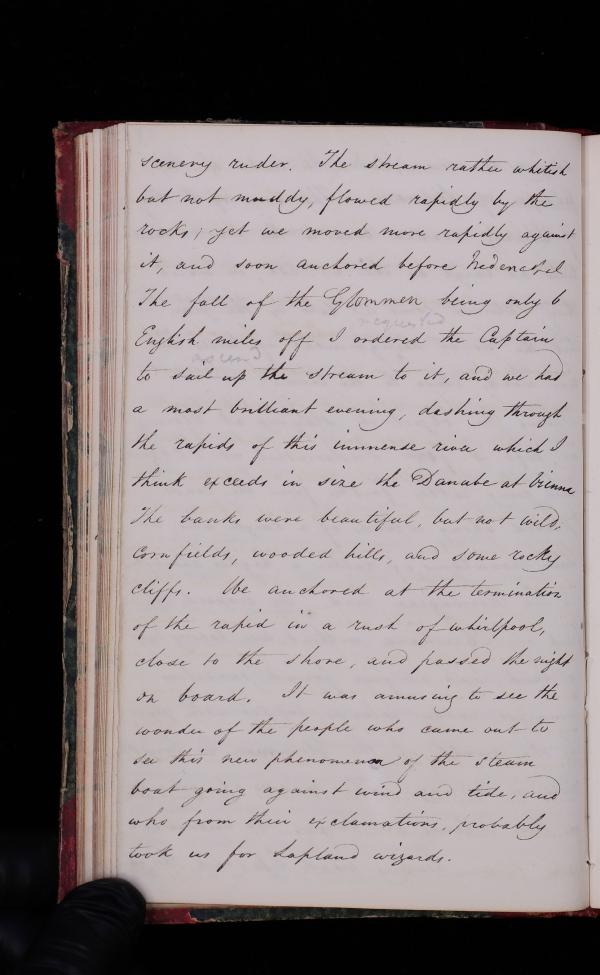 scenery ruder. The stream rather whitish
but not muddy, flowed rapidly by the
rocks; yet we moved more rapidly against
it, and soon anchored before
The fall of the Glommen being only 6
requested
English miles off I ordered the Captain
ascend
to sail up the stream to it, and we had
a most brilliant evening, dashing through
the rapids of this immense river which I
think exceeds in size the Danube at Vienna
The banks were beautiful, but not wild,
cornfields, wooded hills, and some rocky
cliffs. We anchored at the termination
of the rapid in a rush of whirlpool,
close to the shore, and passed the night
on board. It was amusing to see the
wonder of the people who came out to
see this new phenomenon of the steam
boat going against wind and tide, and
who from their exclamations, probably
took us for Lapland wizards.